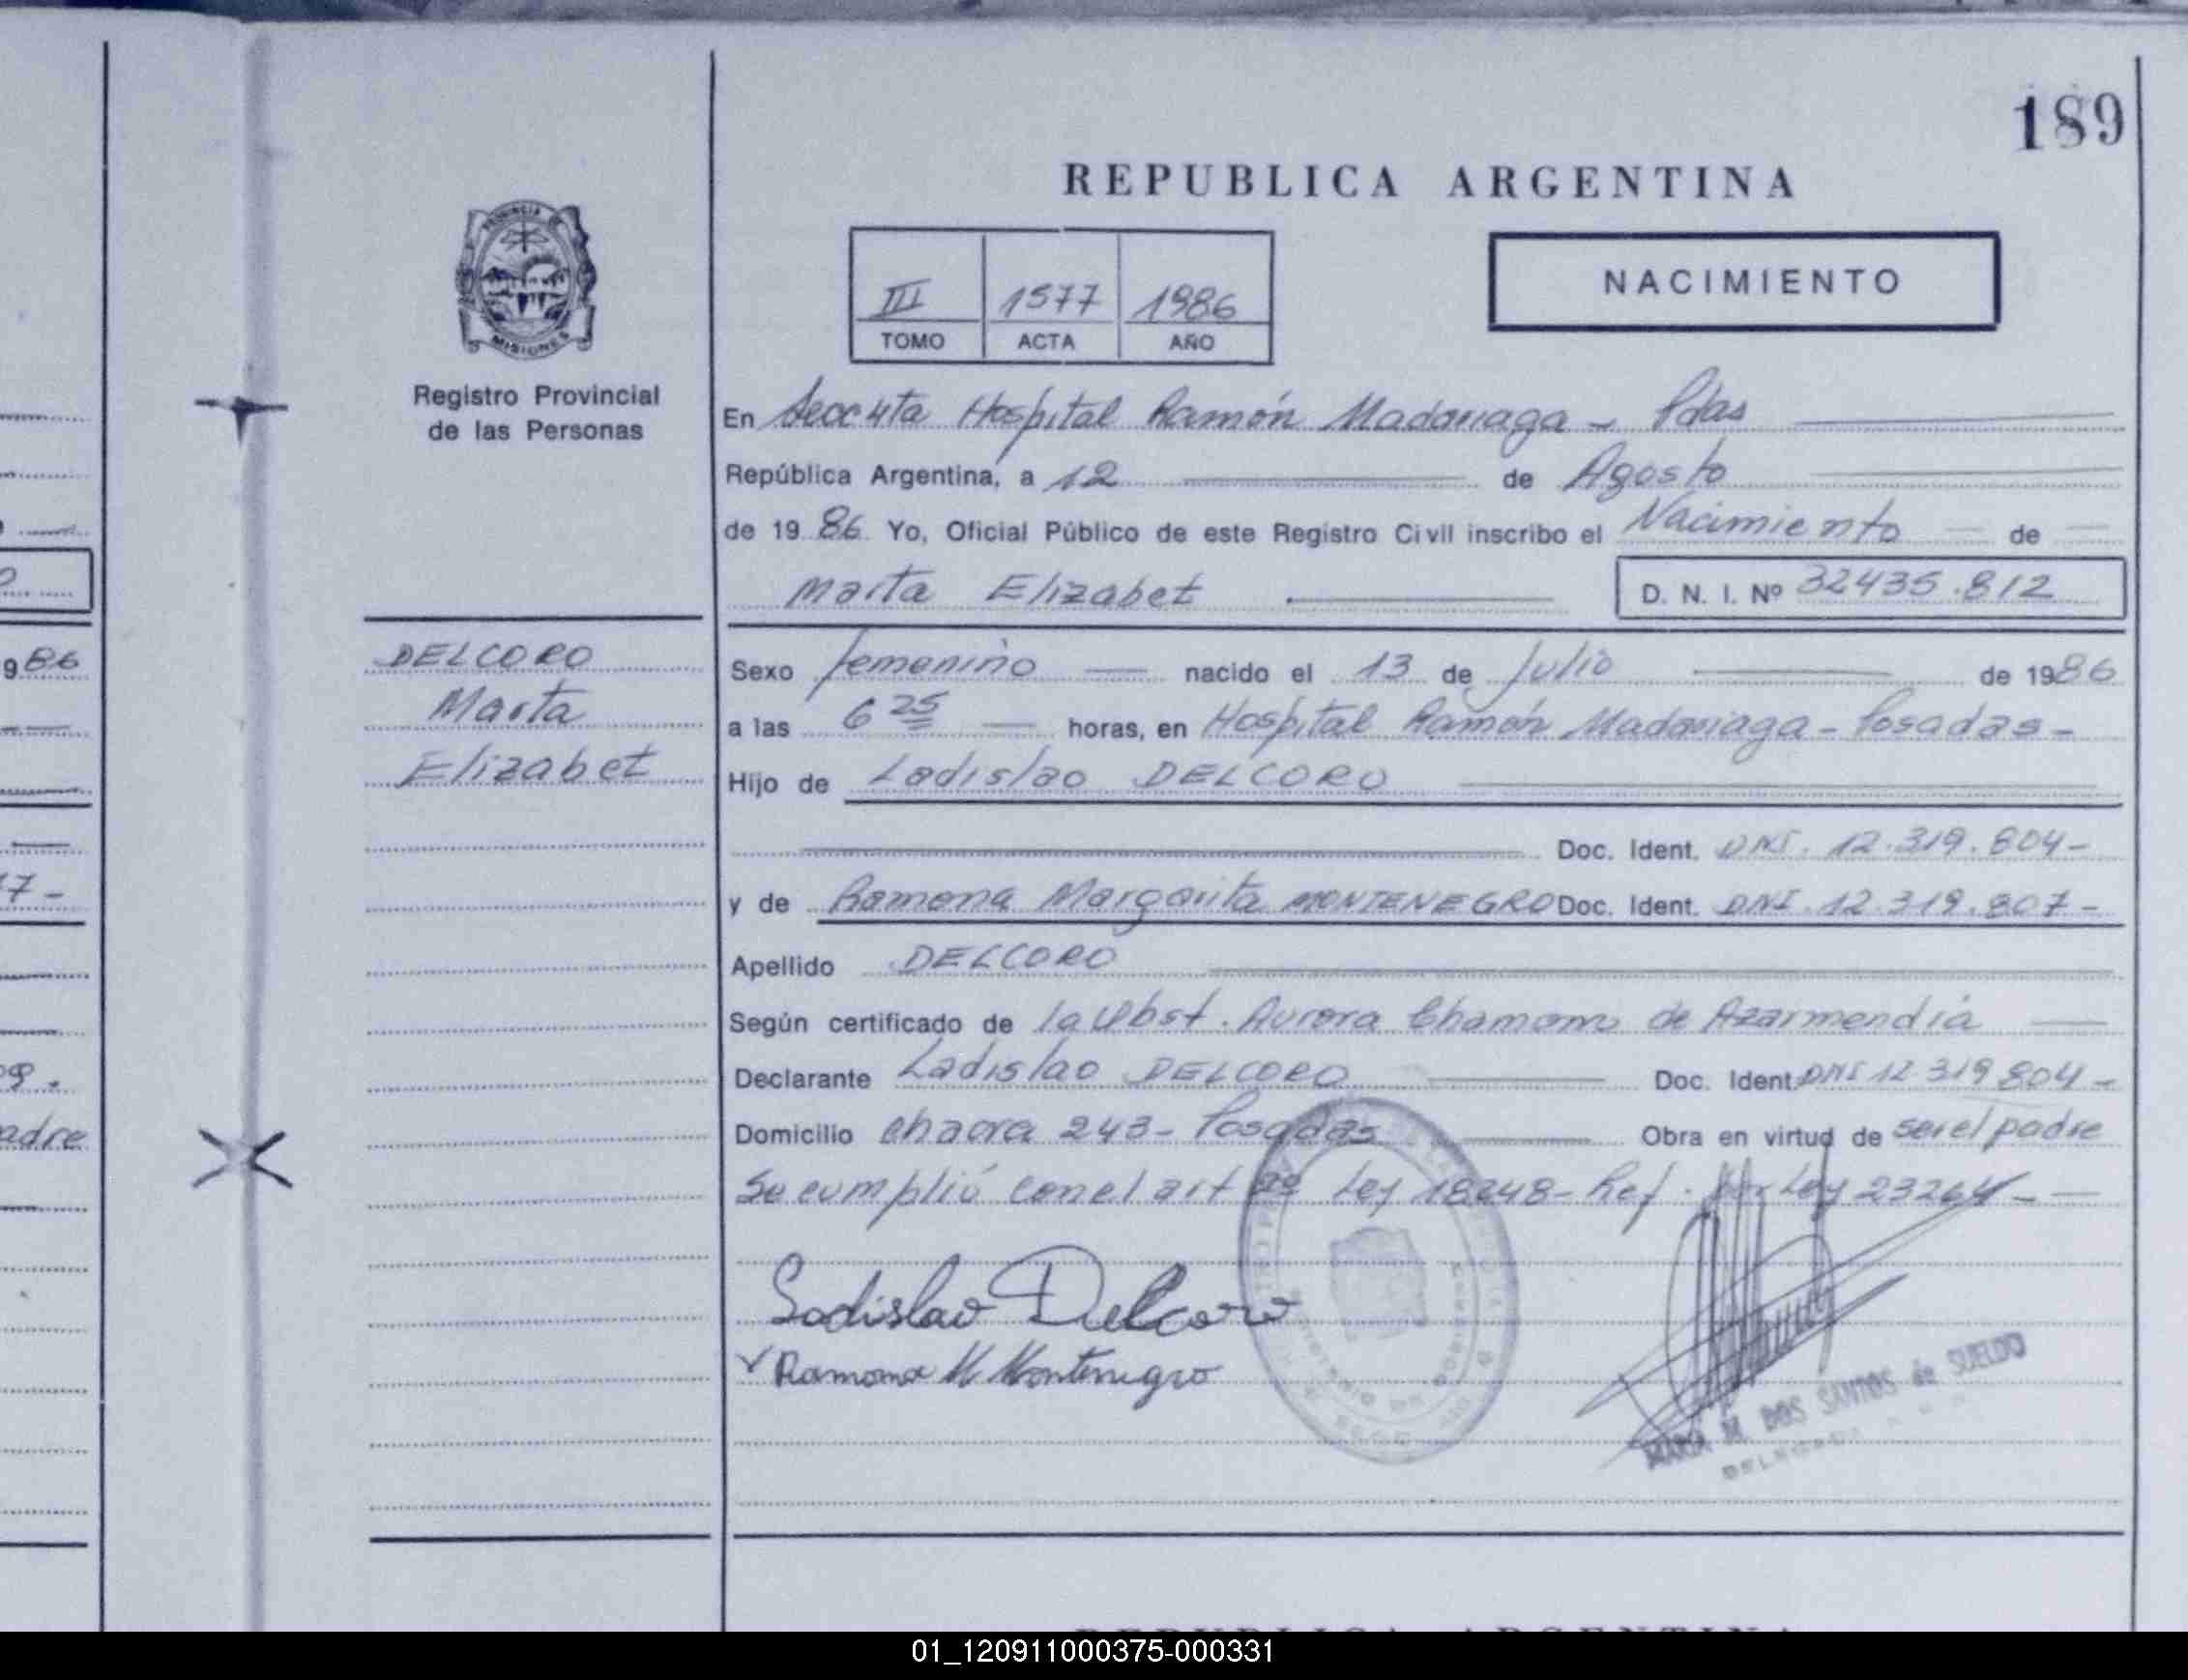 189
REPUBLICA ARGENTINA
PROVINCIA DE
MISIONES
Registro Provincial
de las Personas
III 1577 1986
TOMO ACTA AÑO
NACIMIENTO
En Secc 4ta Hospital Ramón Madariaga - Pdas
República Argentina, a 12 de Agosto
de 1986 Yo, Oficial Público de este Registro Civil inscribo el Nacimiento de
Marta Elizabet D. N. I. Nº 32435.812
DELCORO
Marta
Elizabet
Sexo femenino nacido el 13 de Julio de 1986
a las 6 25 horas, en Hospital Ramón Madariaga - Posadas -
Hijo de Ladislao DELCORO
Doc. Ident. DNI. 12.319.804-
y de Ramona Margarita MONTENEGRO Doc. Ident. DNI. 12.319.807-
Apellido DELCORO
Según certificado de la Obst. Aurora de Azarmendia
Declarante Ladislao DELCORO Doc. Ident. DNI 12 319 804-
Domicilio chacra 243- Posadas Obra en virtud de ser el padre
Se cumplió con el art Ley 18248- Ref. por Ley 23264-
Ladislao Delcoro
Ramona M Montenegro
MARIA M. DOS SANTOS de SUELDO
986
7-
adre
01_120911000375-000331